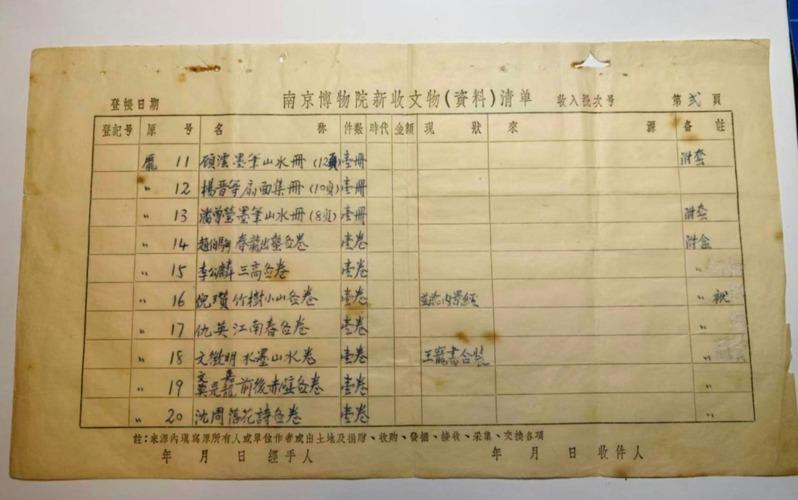 南京博物院新收文物(資料)清单
登帳日期 收入批次号 第 弍 頁
登記号 原号 名称 件数 時代 金額 現狀 來源 备註
龐 11 顾澐墨筆山水冊(12頁) 壹冊 附套
〃 12 楊晋等扇面集冊(10頁) 壹冊
〃 13 潘曾瑩墨筆山水冊(8頁) 壹冊 附套
〃 14 趙伯駒春龍出蟄啚卷 壹卷
〃 15 李公麟三高啚卷 壹卷 〃
〃 16 倪瓚竹樹小山啚卷 壹卷 〃
〃 17 仇英江南春啚卷 壹卷 〃
〃 18 文徵明水墨山水卷 壹卷 王寵書合裝 〃
〃 19 文嘉 莫是龍前後赤壁啚卷 壹卷 〃
〃 20 沈周落花詩啚卷 壹卷 〃
註:來源內填寫原所有人或單位作者或出土地及捐贈、收購、發掘、接收、采集、交換各項
年 月 日 經手人 年 月 日 收件人